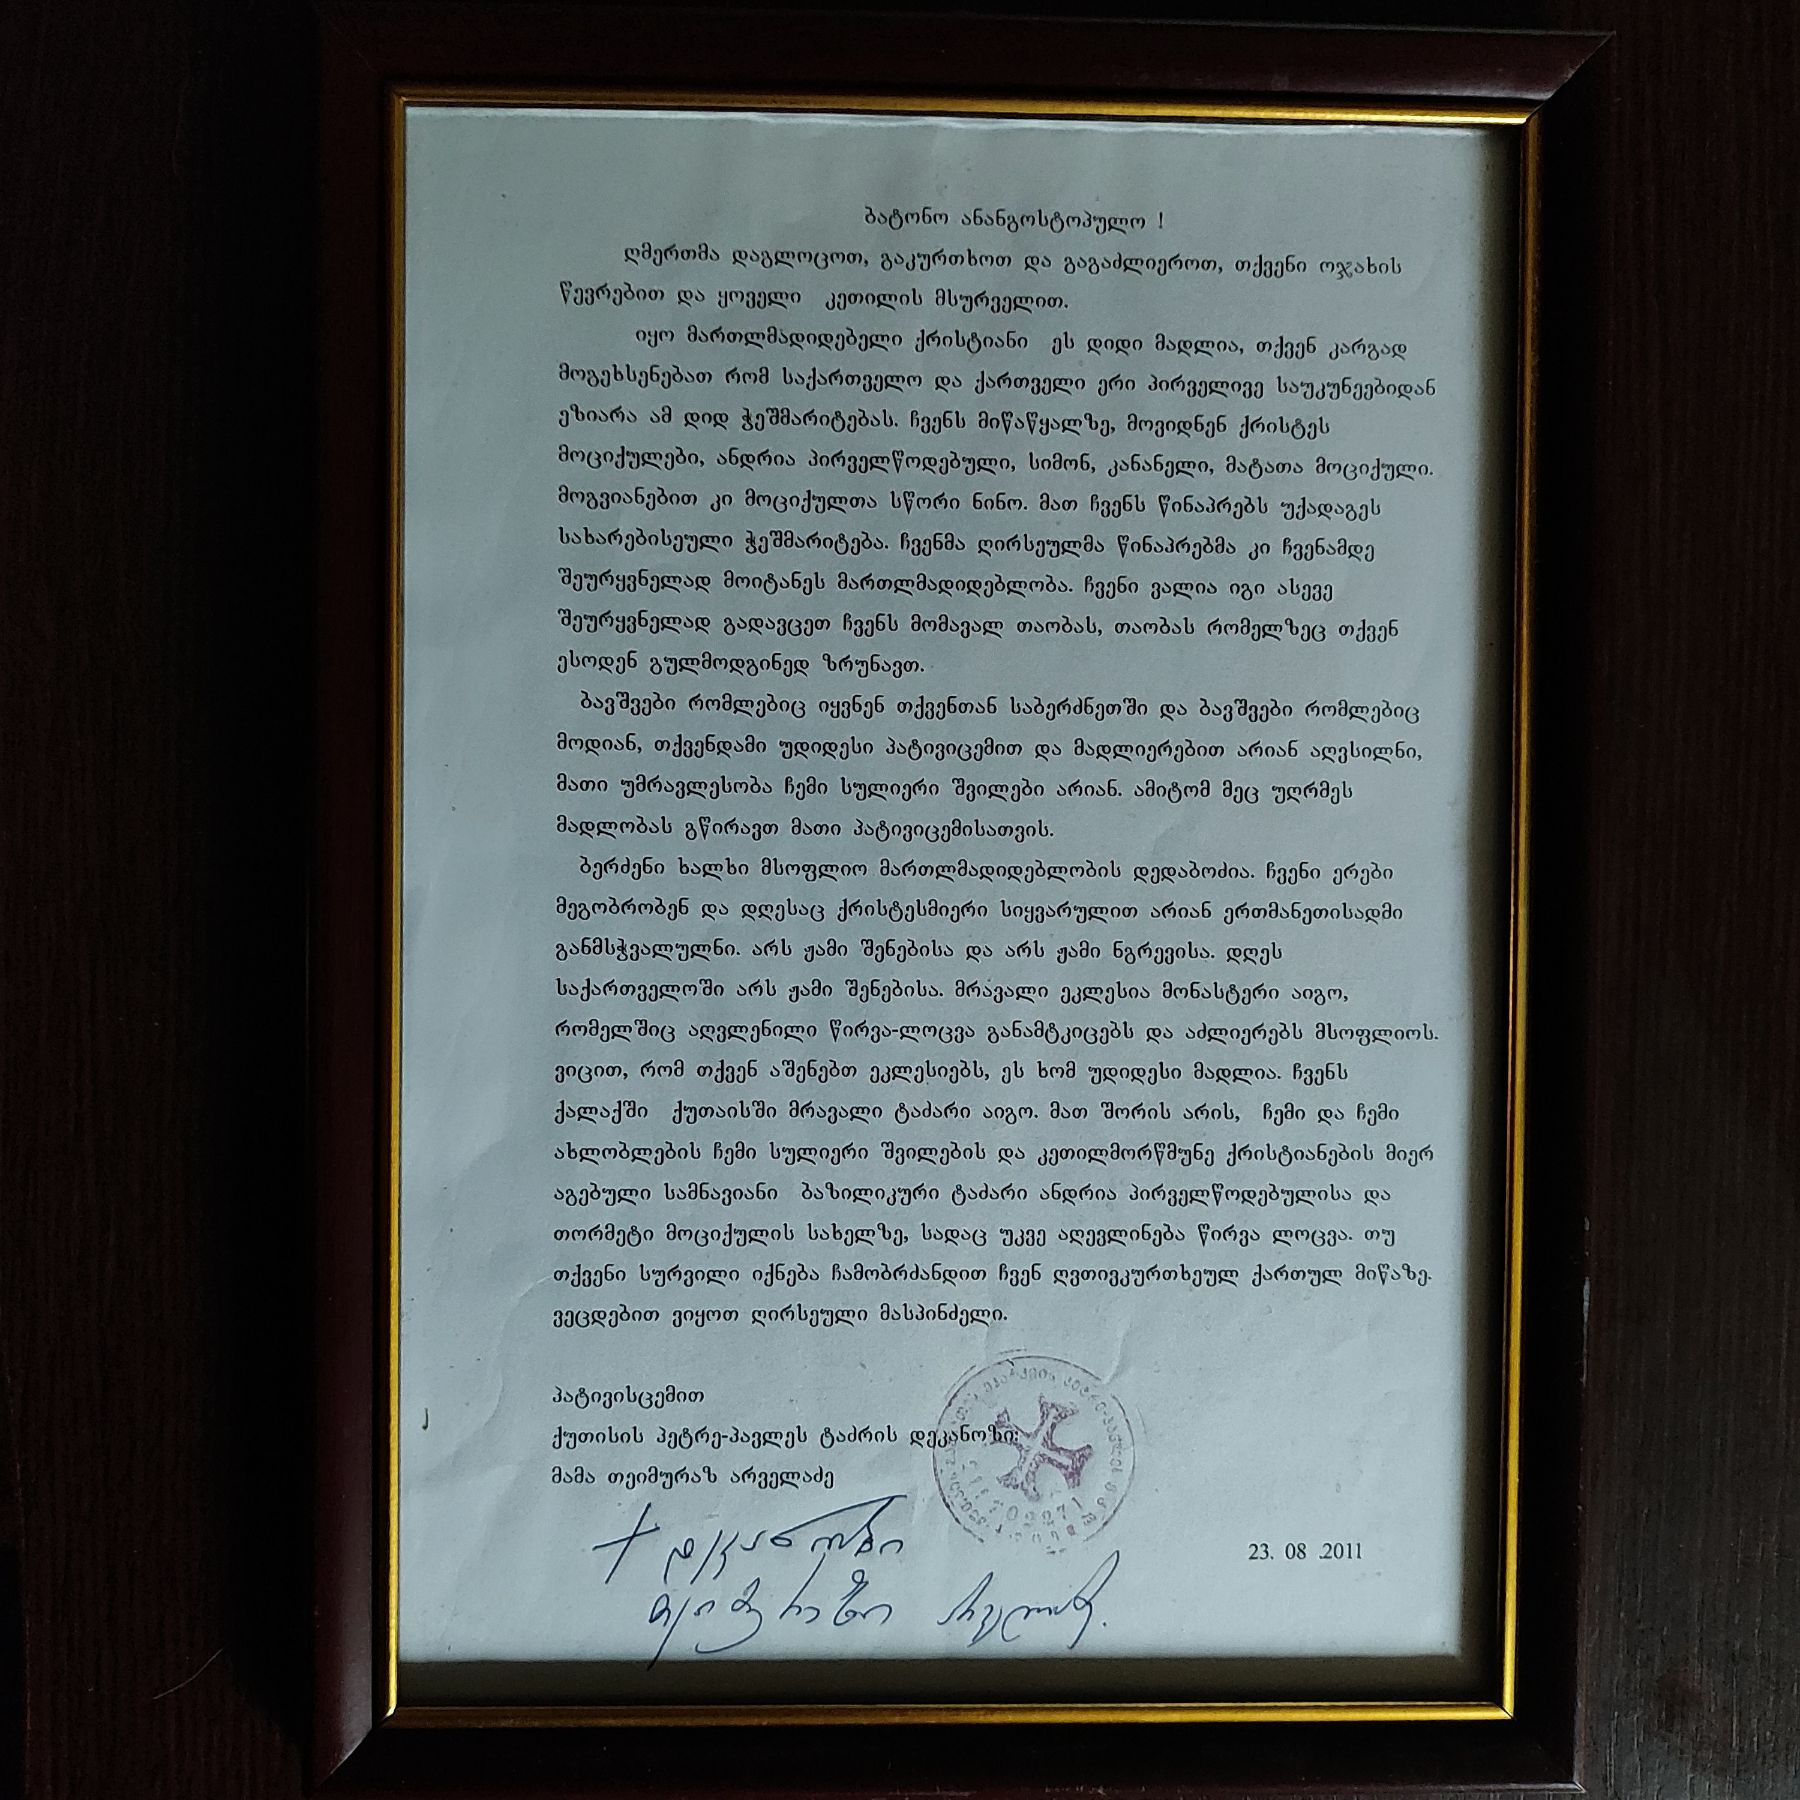 ბატონო ანანგოსტოპულო !
ღმერთმა დაგლოცოთ, გაკურთხოთ და გაგაძლიეროთ, თქვენი ოჯახის
წევრებით და ყოველი კეთილის მსურველით.
იყო მართლმადიდებელი ქრისტიანი ეს დიდი მადლია, თქვენ კარგად
მოგეხსენებათ რომ საქართველო და ქართველი ერი პირველივე საუკუნეებიდან
ეზიარა ამ დიდ ჭეშმარიტებას. ჩვენს მიწაწყალზე, მოვიდნენ ქრისტეს
მოციქულები, ანდრია პირველწოდებული, სიმონ, კანანელი, მატათა მოციქული.
მოგვიანებით კი მოციქულთა სწორი ნინო. მათ ჩვენს წინაპრებს უქადაგეს
სახარებისეული ჭეშმარიტება. ჩვენმა ღირსეულმა წინაპრებმა კი ჩვენამდე
შეურყვნელად მოიტანეს მართლმადიდებლობა. ჩვენი ვალია იგი ასევე
შეურყვნელად გადავცეთ ჩვენს მომავალ თაობას, თაობას რომელზეც თქვენ
ესოდენ გულმოდგინედ ზრუნავთ.
ბავშვები რომლებიც იყვნენ თქვენთან საბერძნეთში და ბავშვები რომლებიც
მოდიან, თქვენდამი უდიდესი პატივიცემით და მადლიერებით არიან აღვსილნი,
მათი უმრავლესობა ჩემი სულიერი შვილები არიან. ამიტომ მეც უღრმეს
მადლობას გწირავთ მათი პატივიცემისათვის.
ბერძენი ხალხი მსოფლიო მართლმადიდებლობის დედაბოძია. ჩვენი ერები
მეგობრობენ და დღესაც ქრისტესმიერი სიყვარულით არიან ერთმანეთისადმი
განმსჭვალულნი. არს ჟამი შენებისა და არს ჟამი ნგრევისა. დღეს
საქართველოში არს ჟამი შენებისა. მრავალი ეკლესია მონასტერი აიგო,
რომელშიც აღვლენილი წირვა-ლოცვა განამტკიცებს და აძლიერებს მსოფლიოს.
ვიცით, რომ თქვენ აშენებთ ეკლესიებს, ეს ხომ უდიდესი მადლია. ჩვენს
ქალაქში ქუთაისში მრავალი ტაძარი აიგო. მათ შორის არის, ჩემი და ჩემი
ახლობლების ჩემი სულიერი შვილების და კეთილმორწმუნე ქრისტიანების მიერ
აგებული სამნავიანი ბაზილიკური ტაძარი ანდრია პირველწოდებულისა და
თორმეტი მოციქულის სახელზე, სადაც უკვე აღევლინება წირვა ლოცვა. თუ
თქვენი სურვილი იქნება ჩამობრძანდით ჩვენ ღვთივკურთხეულ ქართულ მიწაზე.
ვეცდებით ვიყოთ ღირსეული მასპინძელი.
პატივისცემით
ქუთისის პეტრე-პავლეს ტაძრის დეკანოზი:
მამა თეიმურაზ არველაძე
დეკანოზი
23. 08 .2011
თეიმურაზი არველაძე.